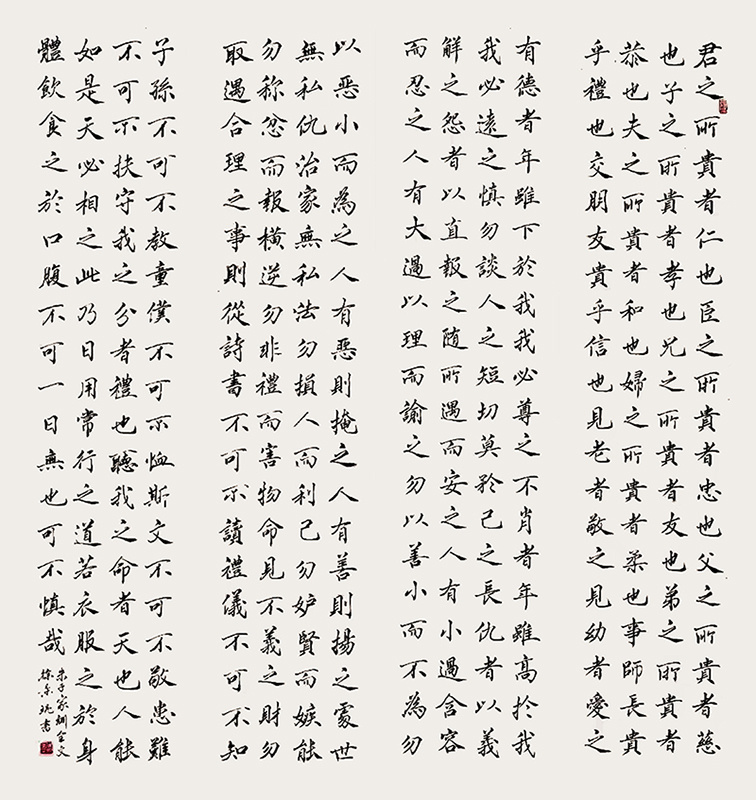 君之所貴者仁也臣之所貴者忠也父之所貴者慈
也子之所貴者孝也兄之所貴者友也弟之所貴者
恭也夫之所貴者和也婦之所貴者柔也事師長貴
乎禮也交朋友貴乎信也見老者敬之見幼者愛之
有德者年雖下於我我必尊之不肖者年雖高於我
我必遠之慎勿談人之短切莫矜己之長仇者以義
解之怨者以直報之随所遇而安之人有小過含容
而忍之人有大過以理而諭之勿以善小而不為勿
以惡小而為之人有惡則掩之人有善則揚之處世
無私仇治家無私法勿損人而利己勿妒賢而嫉能
勿称忿而報橫逆勿非禮而害物命見不義之財勿
取遇合理之事則從詩書不可不讀禮儀不可不知
子孫不可不教童僕不可不恤斯文不可不敬患難
不可不扶守我之分者禮也聽我之命者天也人能
如是天必相之此乃日用常行之道若衣服之於身
體飲食之於口腹不可一日無也可不慎哉
朱子家訓全文
徐書